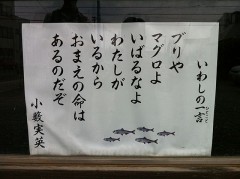 いわしの一言
ひとこと
ブリや
マグロよ
いばるなよ
わたしが
いるから
おまえの命は
あるのだぞ
小藪実英